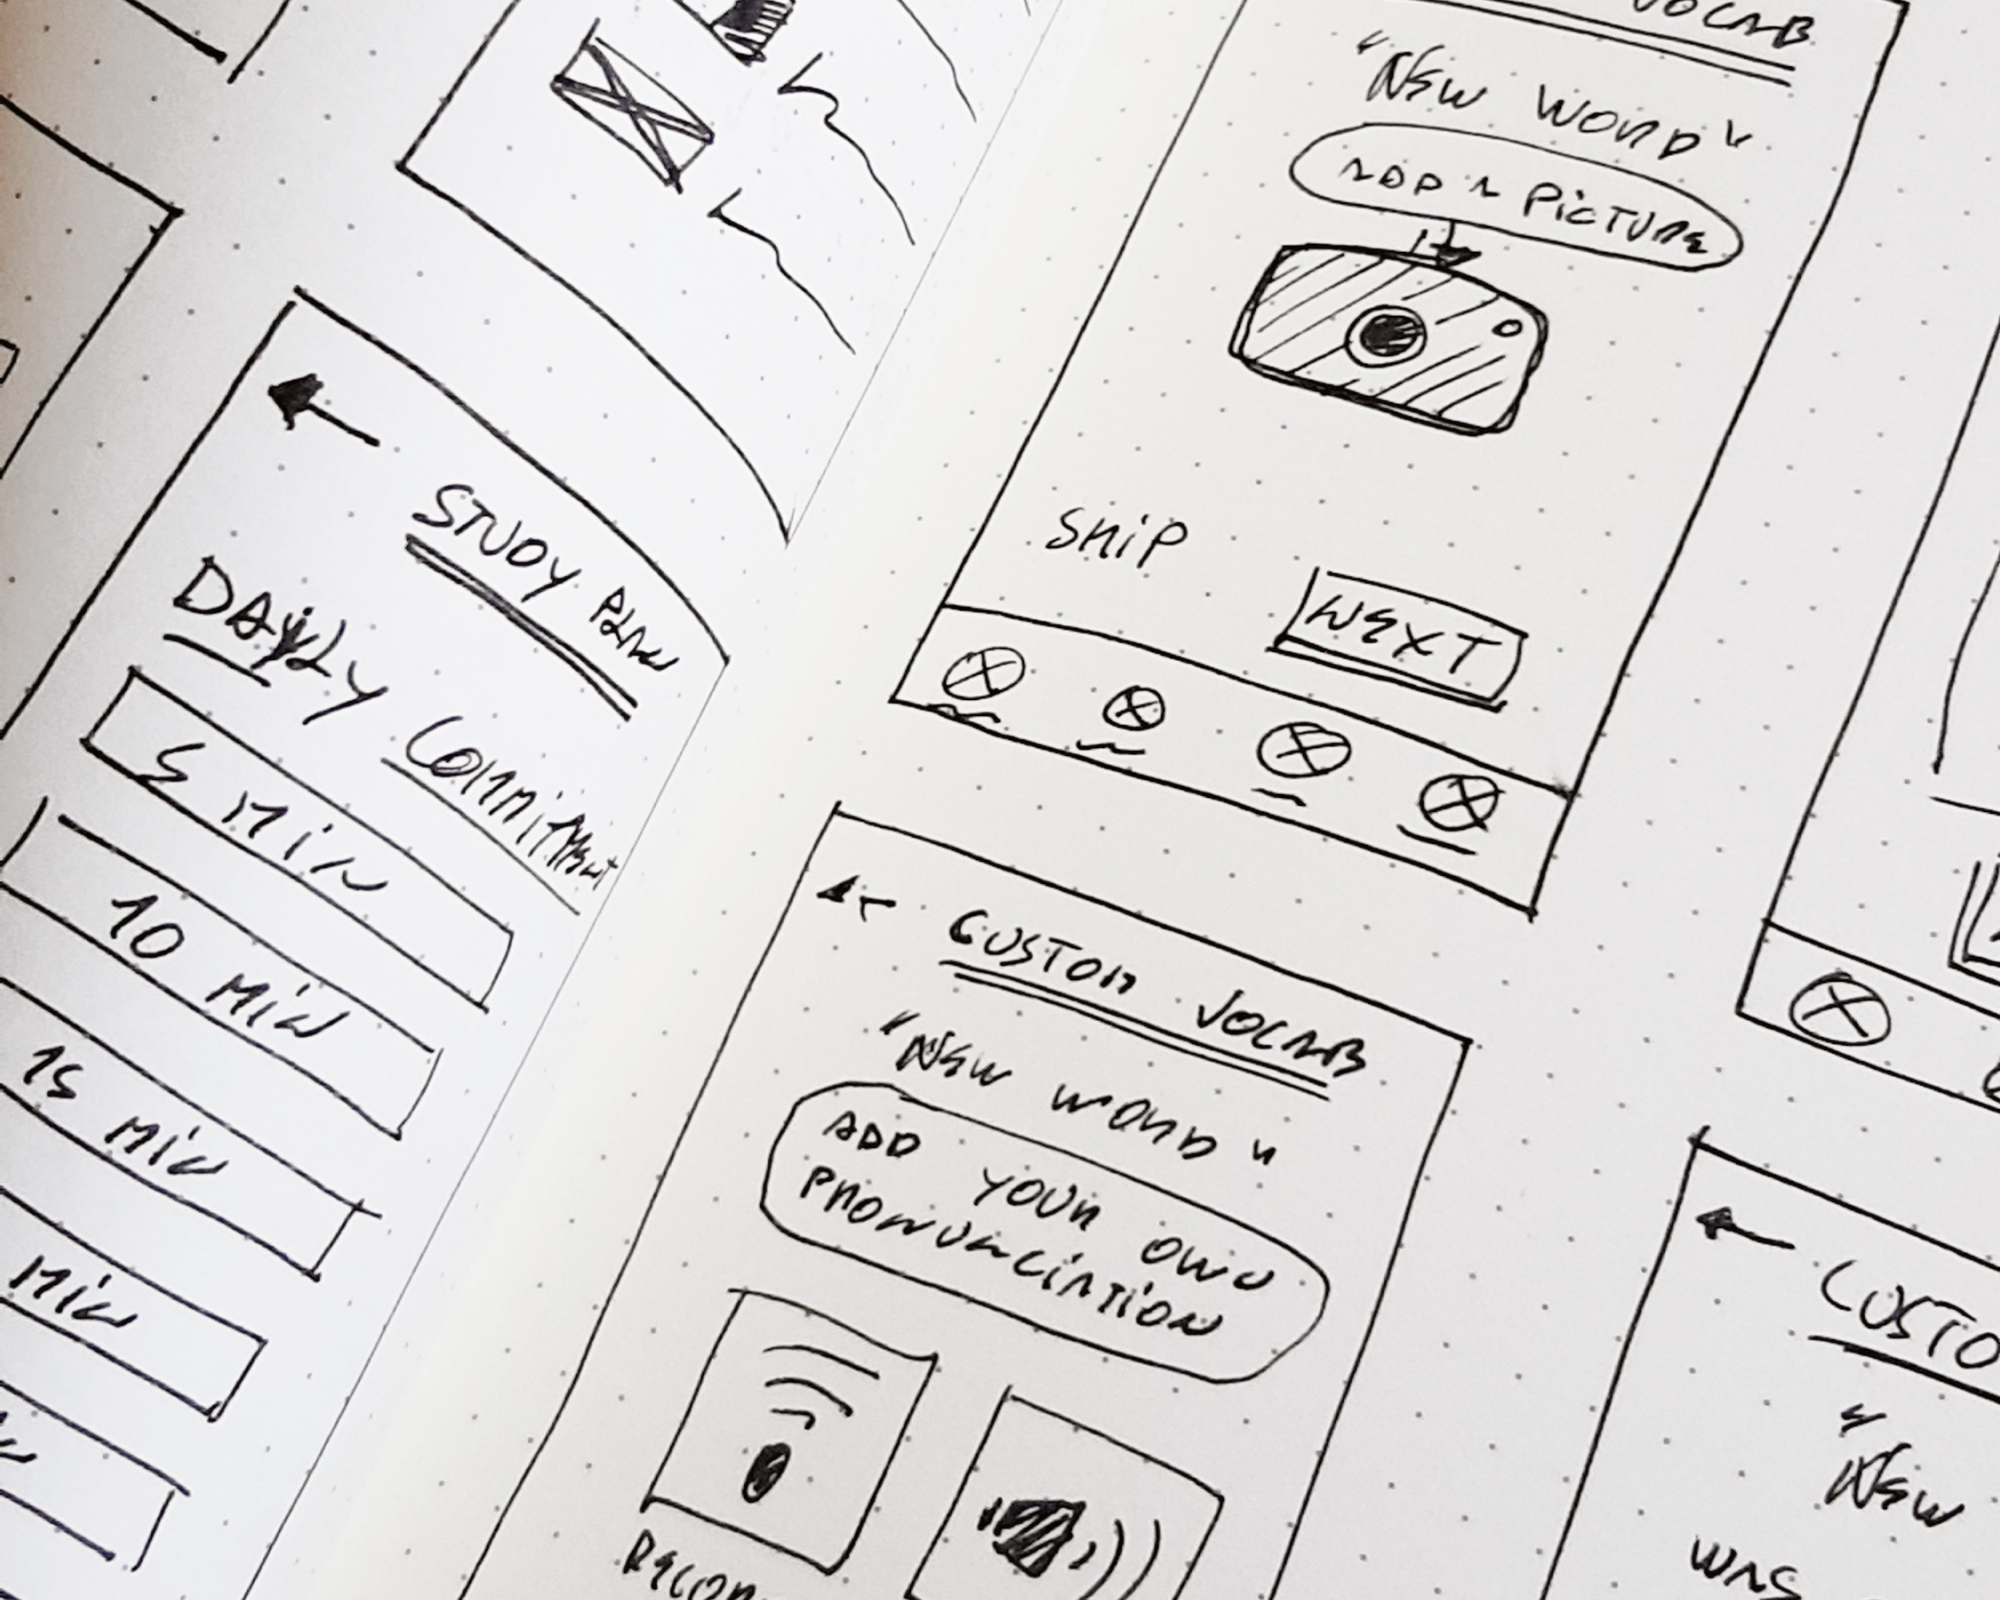 STUDY PLAN
DAILY Commitment
5 MiN
10 MiN
15 MiN
MiN
VOCAB
"NEW WORD"
ADD A PiCTURE
SKiP
NEXT
CUSTOM VOCAB
"NEW WORD"
ADD YOUR OWN
PRONUNCIATION
RECOR
CUSTO
"NEW
WAS